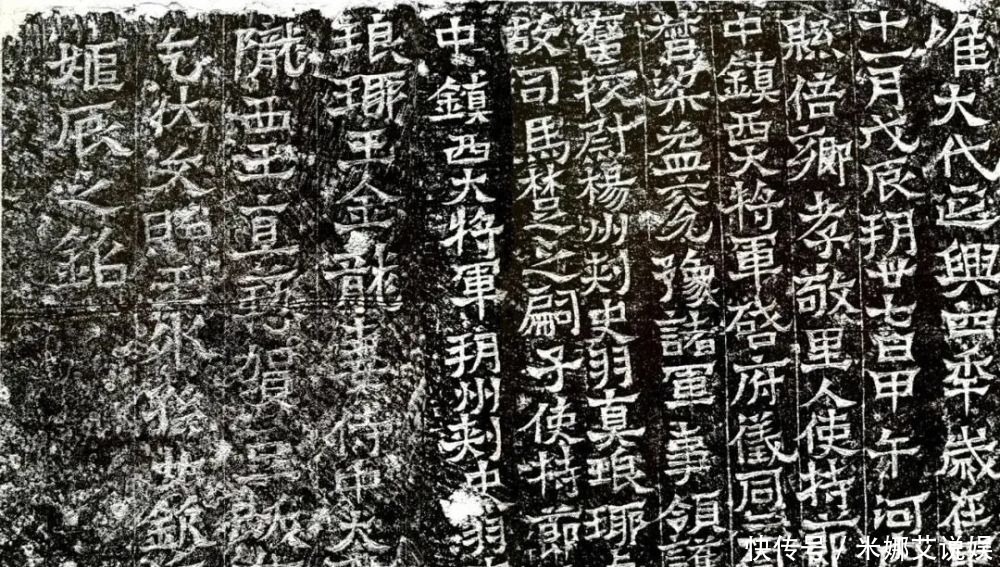 唯大代延興四年歲在
十一月戊辰朔廿七日甲午河
縣倍鄉孝敬里人使持節
中鎮西大將軍啓府儀同三
督梁益兖豫諸軍事領護
蠻校尉楊州刺史羽真琅琊
故司馬楚之嗣子使持節
中鎮西大將軍朔州刺史羽
琅琊王金龍妻侍中太
隴西王直懃賀豆跋
乞伏文照王外孫女欽
姬辰之銘
快传号 / 米娜艾说娱